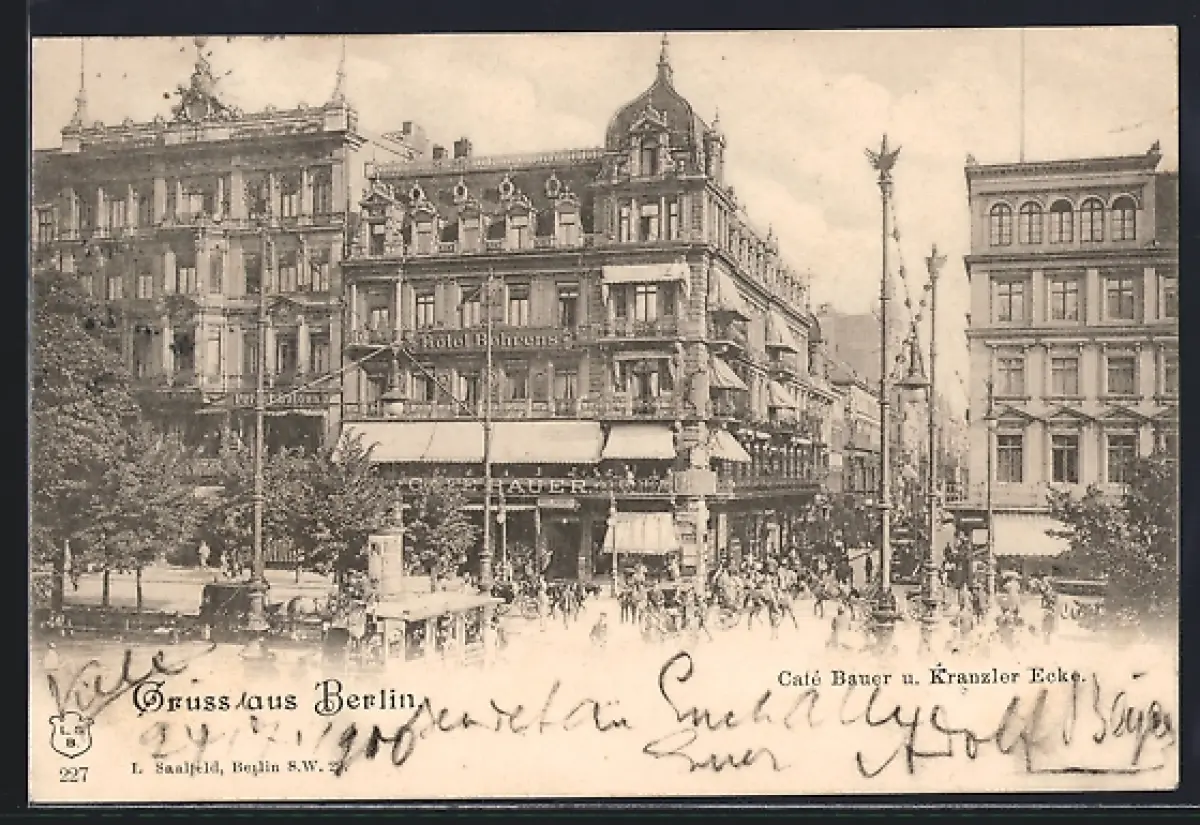 Hotel Behrens
CAFE BAUER
Viele
Gruss aus Berlin.
Café Bauer u. Kranzler Ecke.
sendet an Euch alle
Euer Adolf
L S
B.
227
L. Saalfeld, Berlin S.W.